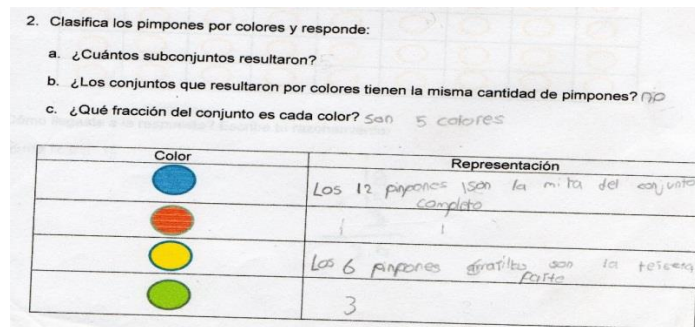 2. Clasifica los pimpones por colores y responde:
a. ¿Cuántos subconjuntos resultaron?
b. ¿Los conjuntos que resultaron por colores tienen la misma cantidad de pimpones? no
c. ¿Qué fracción del conjunto es cada color? son 5 colores
Color Representación
Los 12 pinpones son la mita del conjunto
completo
1 1
Los 6 pinpones son la
parte
3